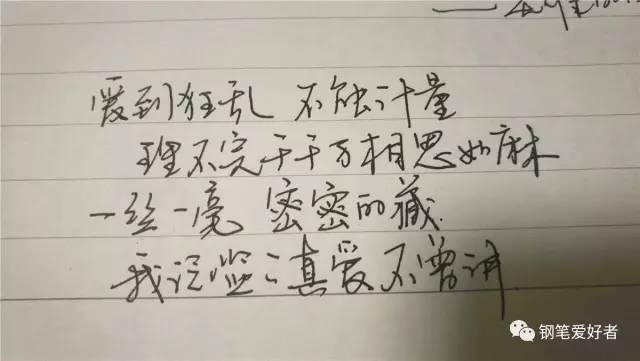 爱到狂乱 不能计量
理不完千千万相思如麻
一丝一毫 密密的藏
我 真爱不曾讲
钢笔爱好者